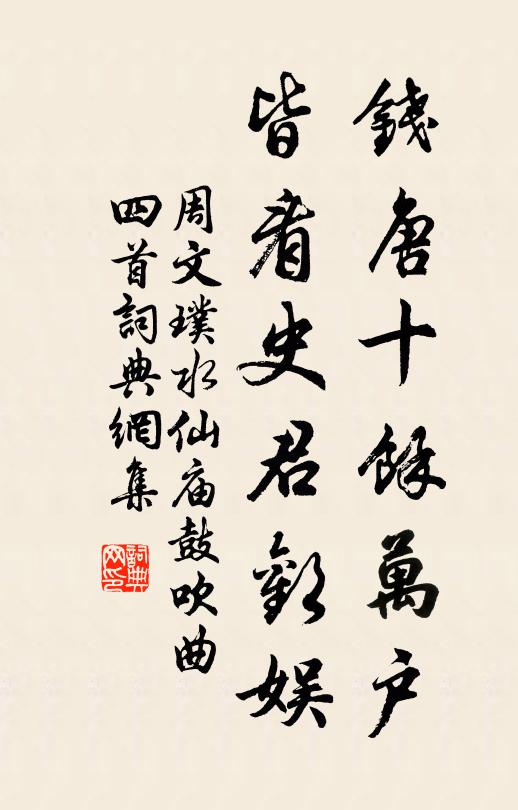 錢唐十餘萬戶
皆看史君歡娛
周文璞水仙庙鼓吹曲
四首詞典網集
詞典網印